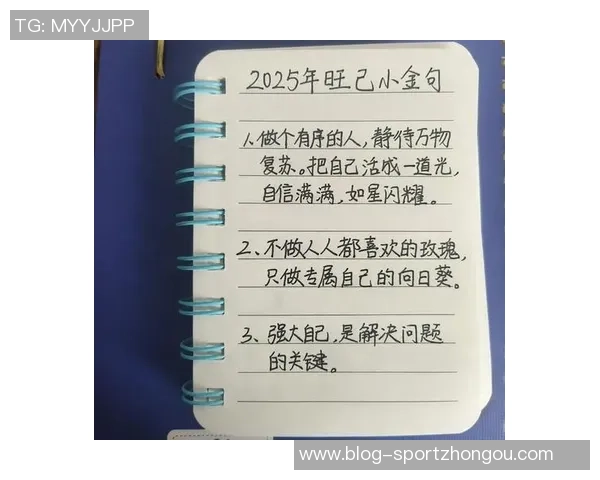 TG: MYYJJPP
2025年旺己小金句
1、做个有序的人,静待万物
复苏。把自己活成一道光,
自信满满,如星闪耀。
2、不做人人都喜欢的玫瑰,
只做专属自己的向日葵。
3、强大自己,是解决问题
的关键。
www.blog-sportzhongou.com